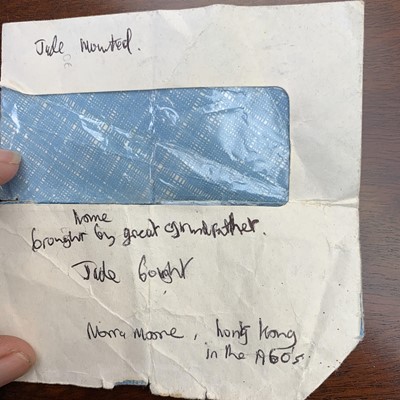 Jade Mounted.
home
brought by great grandfather.
Jade bought
Moore, Hong Kong
in the 1960s.